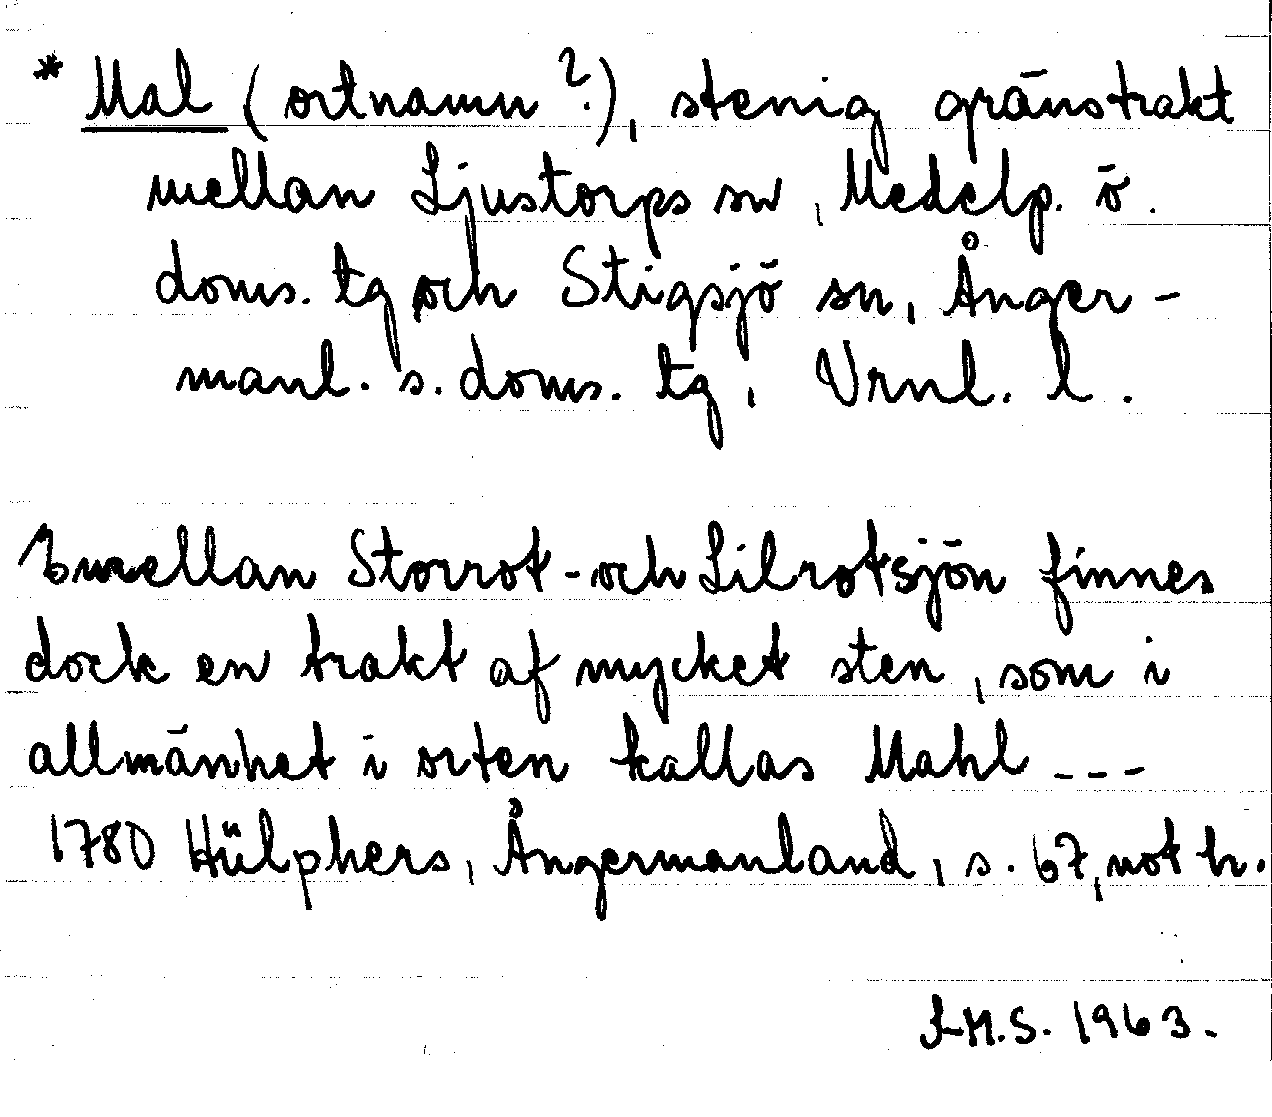 * Mal (ortnamn?), stenig gränstrakt
mellan Ljustorps sn, Medelp. ö.
doms. tg och Stigsjö sn, Ånger-
manl. s. doms. tg, Vrnl. l.
Emellan Storrot- och Lilrotsjön finnes
dock en trakt af mycket sten, som i
allmänhet i orten kallas Mahl ---
1780 Hülphers, Ångermanland, s. 67, not h.
L-H.S. 1963.